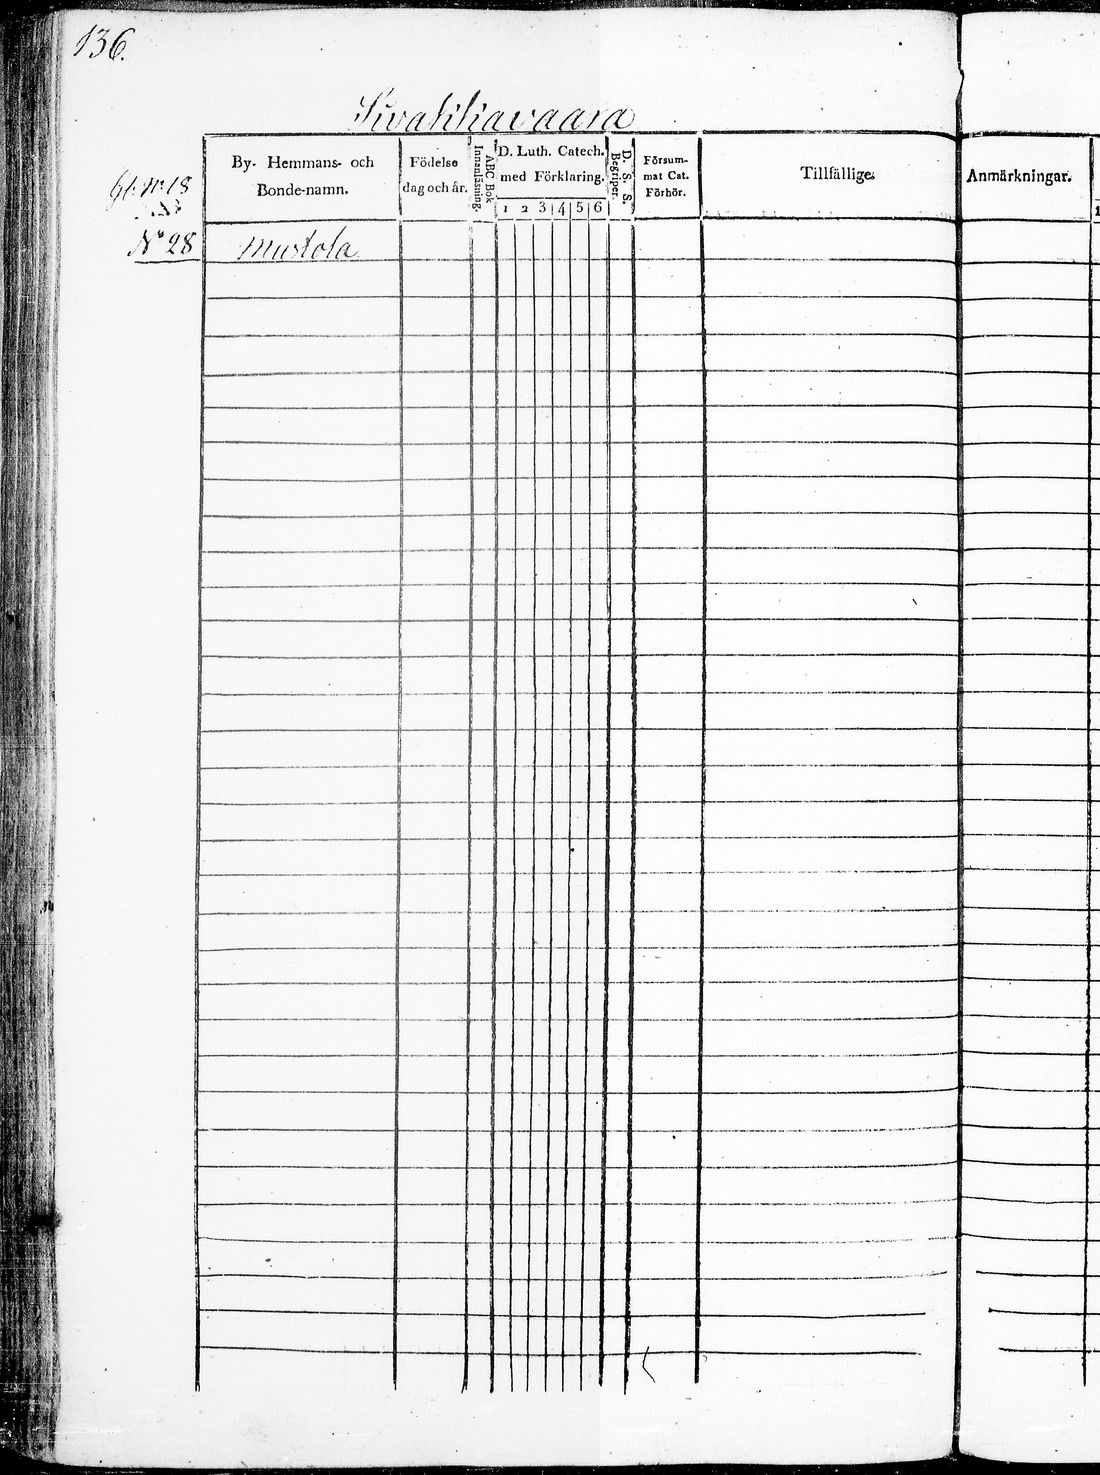 136.
Sivakkavaara
By- Hemmans- och
Bonde-namn.
Födelse
dag och år.
ABC Bok
Innanläsning.
D. Luth. Catech.
med Förklaring.
1 2 3 4 5 6
D. S. S.
Begriper.
Försum-
mat Cat.
Förhör.
Tillfällige
Anmärkningar.
1
N° 18
N° 28
Mustola